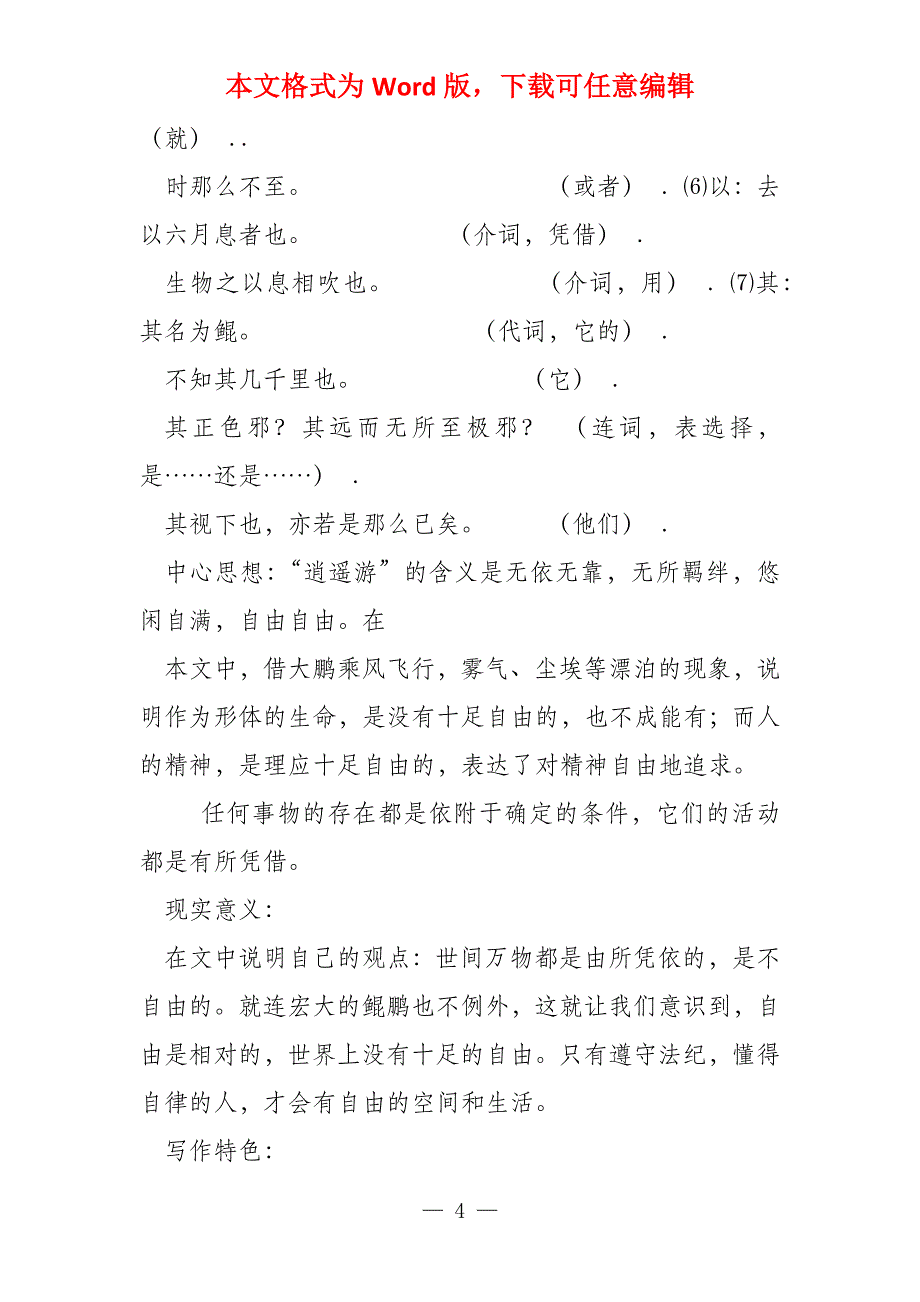 本文格式为 Word 版，下载可任意编辑
（就） ．．
时那么不至。 （或者） ．⑹以：去
以六月息者也。 （介词，凭借） ．
生物之以息相吹也。 （介词，用） ．⑺其：
其名为鲲。 （代词，它的） ．
不知其几千里也。 （它） ．
其正色邪？其远而无所至极邪？ （连词，表选择，
是……还是……） ．
其视下也，亦若是那么已矣。 （他们） ．
中心思想：“逍遥游”的含义是无依无靠，无所羁绊，悠
闲自满，自由自由。在
本文中，借大鹏乘风飞行，雾气、尘埃等漂泊的现象，说
明作为形体的生命，是没有十足自由的，也不成能有；而人
的精神，是理应十足自由的，表达了对精神自由地追求。
任何事物的存在都是依附于确定的条件，它们的活动
都是有所凭借。
现实意义：
在文中说明自己的观点：世间万物都是由所凭依的，是不
自由的。就连宏大的鲲鹏也不例外，这就让我们意识到，自
由是相对的，世界上没有十足的自由。只有遵守法纪，懂得
自律的人，才会有自由的空间和生活。
写作特色：
— 4 —